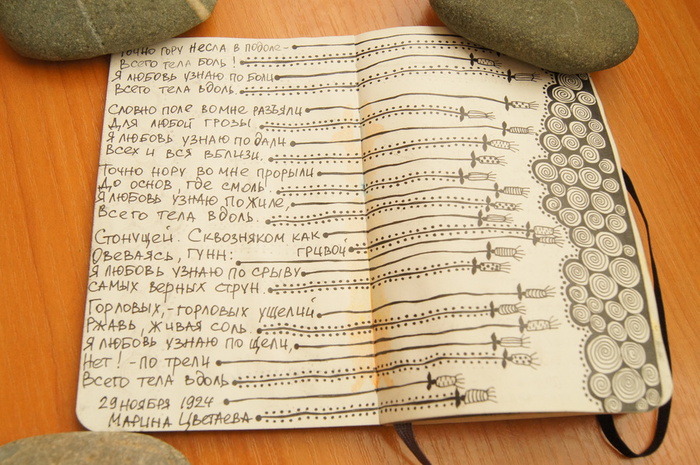 Точно гору несла в подоле -
Всего тела боль!
Я любовь узнаю по боли
Всего тела вдоль.
Словно поле во мне разъяли
Для любой грозы.
Я любовь узнаю по дали
Всех и вся вблизи.
Точно нору во мне прорыли
До основ, где смоль.
Я любовь узнаю по жиле,
Всего тела вдоль.
Стонущей. Сквозняком как
гривой
Овеваясь, гунн:
Я любовь узнаю по срыву
Самых верных струн.
Горловых, - горловых ущелий
Ржавь, живая соль.
Я любовь узнаю по щели,
Нет! - по трели
Всего тела вдоль
29 ноября 1924
Марина Цветаева